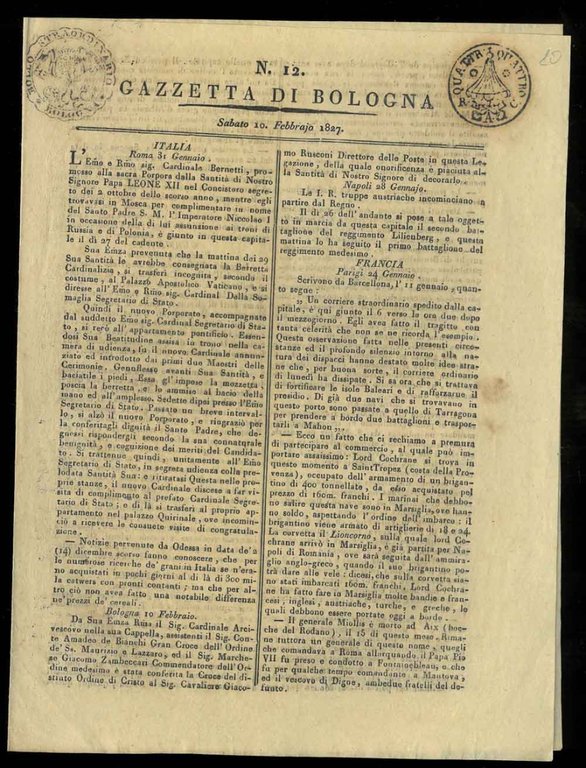 BOLLO STRAORDINARIO
BOLOGNA
QUATTRI QUATTRO
20
N. 12.
GAZZETTA DI BOLOGNA
Sabato 10. Febbrajo 1827.
ITALIA
Roma 31 Gennaio.
L' Emo e Rmo sig. Cardinale Bernetti, pro-
mosso alla sacra Porpora dalla Santità di Nostro
Signore Papa LEONE XII nel Concistoro segre-
to dei 2 ottobre dello scorso anno, mentre egli
trovavasi in Mosca per complimentare in nome
del Santo Padre S. M. l'Imperatore Niccolao I
in occasione della di lui assunzione ai troni di
Russia e di Polonia, è giunto in questa capita-
le il dì 27 del cadente.
Sua Emza prevenuta che la mattina dei 29
Sua Santità le avrebbe consegnata la Berretta
Cardinalizia, si trasferì incognita, secondo il
costume, al Palazzo Apostolico Vaticano, e si
diresse all'Emo e Rmo sig. Cardinal Della So-
maglia Segretario di Stato.
Quindi il nuovo Porporato, accompagnato
dal suddetto Emo sig. Cardinal Segretario di Sta-
to, si recò all'appartamento pontificio. Essen-
dosi Sua Beatitudine assisa in trono nella ca-
mera di udienza, fu il nuovo Cardinale annun-
ziato ed introdotto dai primi due Maestri delle
Cerimonie. Genuflesso avanti Sua Santità, e
baciatile i piedi, Essa gl'impose la mozzetta,
poscia la berretta, e lo ammise al bacio della
mano ed all'amplesso. Sedette dipoi presso l'Emo
Segretario di Stato. Passato un breve interval-
lo, si alzò il nuovo Porporato, e ringraziò per
la conferitagli dignità il Santo Padre, che de-
gnossi rispondergli secondo la sua connaturale
benignità, e cognizione dei meriti del Candida-
to. Si trattenne quindi, unitamente all'Emo
Segretario di Stato, in segreta udienza colle pre-
lodata Santità Sua: e ritiratasi Questa nelle pro-
prie stanze, il nuovo Cardinale discese a far vi-
sita di complimento al prefato Cardinale Segre-
tario di Stato; e di là si trasferì al proprio ap-
partamento nel palazzo Quirinale, ove incomin-
ciò a ricevere le consuete visite di congratula-
zione.
— Notizie pervenute da Odessa in data de' 2
(14) dicembre scorso fanno conoscere, che per
le numerose ricerche de' grani in Italia se n'era-
no acquistati in pochi giorni al di là di 300 mi-
la catwers con pronti contenti; ma che per al-
tro ciò non avea fatto una notabile differenza
ne' prezzi de' cereali.
Bologna 10 Febbraio.
Da Sua Emza Rma il Sig. Cardinale Arci-
vescovo nella sua Cappella, assistenti il Sig. Con-
te Amadeo de Bianchi Gran Croce dell'Ordine
de' Ss. Maurizio e Lazzaro, ed il Sig. Marche-
se Giacomo Zambeccari Commendatore dell'Or-
dine medesimo è stata conferita la Croce del di-
stinto Ordine di Cristo al Sig. Cavaliere Giaco-
mo Rusconi Direttore delle Poste in questa Le-
gazione, della quale onorificenza è piaciuta al-
la Santità di Nostro Signore di decorarlo.
Napoli 28 Gennajo.
Le I. R. truppe austriache incominciano a
partire dal Regno.
Il dì 26 dell'andante si pose a tale ogget-
to in marcia da questa capitale il secondo bat-
taglione del reggimento Lilienberg, e questa
mattina lo ha seguito il primo battaglione del
reggimento medesimo.
FRANCIA
Parigi 24 Gennaio.
Scrivono da Barcellona, l'11 gennaio, quan-
to segue:
„ Un corriere straordinario spedito dalla ca-
pitale, è qui giunto il 6 verso le ora due dopo
il mezzogiorno. Egli avea fatto il tragitto con
tanta celerità che non se ne ricorda l'esempio.
Questa osservazione fatta nelle presenti circo-
stanze ed il profondo silenzio intorno alla na-
tura dei dispacci hanno destato molte idee stra-
ne che, per buona sorte, il corriere ordinario
di lunedì ha dissipate. Si sa ora che si trattava
di fortificare le isole Baleari e di rafforzarne il
presidio. Di già due navi che si trovavano in
questo porto sono passate a quello di Tarragona
per prendere a bordo due battaglioni e traspor-
tarli a Mahon „.
— Ecco un fatto che ci rechiamo a premura
di partecipare al commercio, al quale può im-
portare assaissimo: Lord Cochrane si trova in
questo momento a SaintTropez (costa della Pro-
venza), occupato dell'armamento di un brigan-
tino di 400 tonnellate, da esso acquistato pel
prezzo di 160m. franchi. I marinai che debbo-
no salire questa nave sono in Marsiglia, ove han-
no soldo, aspettando l'ordine dell'imbarco: il
brigantino viene armato di artiglierie di 18 e 24.
La corvetta il Lioncorno, sulla quale lord Co-
chrane arrivò in Marsiglia, è già partita per Na-
poli di Romania, ove sarà seguita dall'ammira-
glio anglo-greco, quando il suo brigantino po-
trà dare alle vele; dicesi, che sulla corvetta sia-
no stati imbarcati 160m. franchi. Lord Cochra-
ne ha fatto fare in Marsiglia molte bandie e fran-
cesi, inglesi, austriache, turche, e greche, le
quali debbono essere portate ogni a bordo.
— Il generale Miollis è morto ad Aix (boc-
che del Rodano), il 15 di questo mese, Rima-
ne tuttora un generale di questo nome, quegli
che comandava a Roma allorquando il Papa Pio
VII fu preso e condotto a Fontainebleau, e che
fu per qualche tempo comandante a Mantova,
ed il vescovo di Digne, ambedue fratelli del de-
funto.